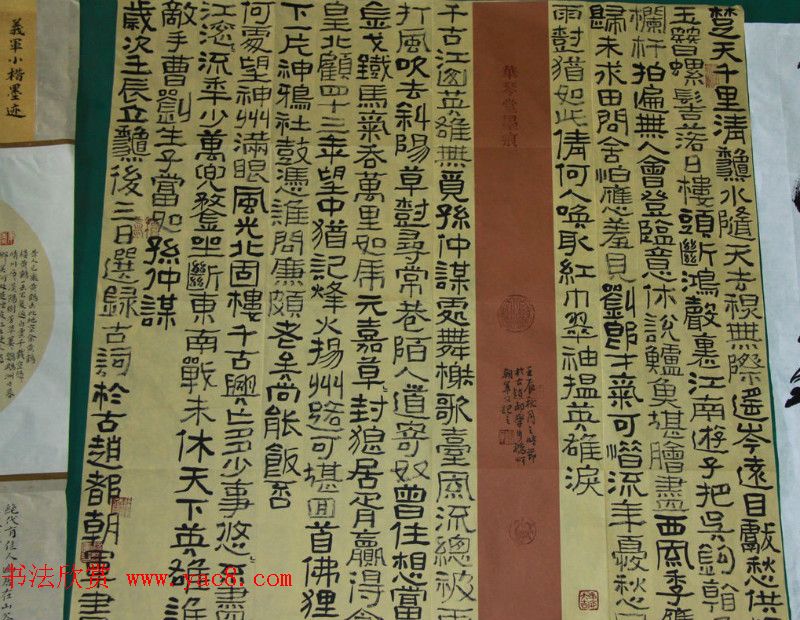 楚天千里清龝水隨天去秋無際遙岑遠目獻愁供
玉簪螺髻落日樓頭斷鴻聲裏江南遊子把吳鉤
欄杆拍遍無人會登臨意休說鱸魚堪膾盡西風季鷹
歸未求田問舍怕應羞見劉郎才氣可惜流年憂愁
雨樹猶如此倩何人喚取紅巾翠袖搵英雄淚
華琴堂墨痕
千古江山英雄無覓孫仲謀處舞榭歌臺風流總被雨
打風吹去斜陽草樹尋常巷陌人道寄奴曾住想當
金戈鐵馬氣吞萬里如虎元嘉草〻封狼居胥贏得倉
皇北顧四十三年望中猶記烽火揚州路可堪回首佛狸
下一片神鴉社鼓憑誰問廉頗老矣尚能飯否
何處望神州滿眼風光北固樓千古興亡多少事悠〻盡
江滾〻流年少萬兜鍪坐斷東南戰未休天下英雄誰
敵手曹劉生子當如孫仲謀
歲次壬辰立龝後三日選錄古詞於古趙都朝軍書
義軍小楷墨迹
絕代有佳人
书法欣赏 www.yac8.com